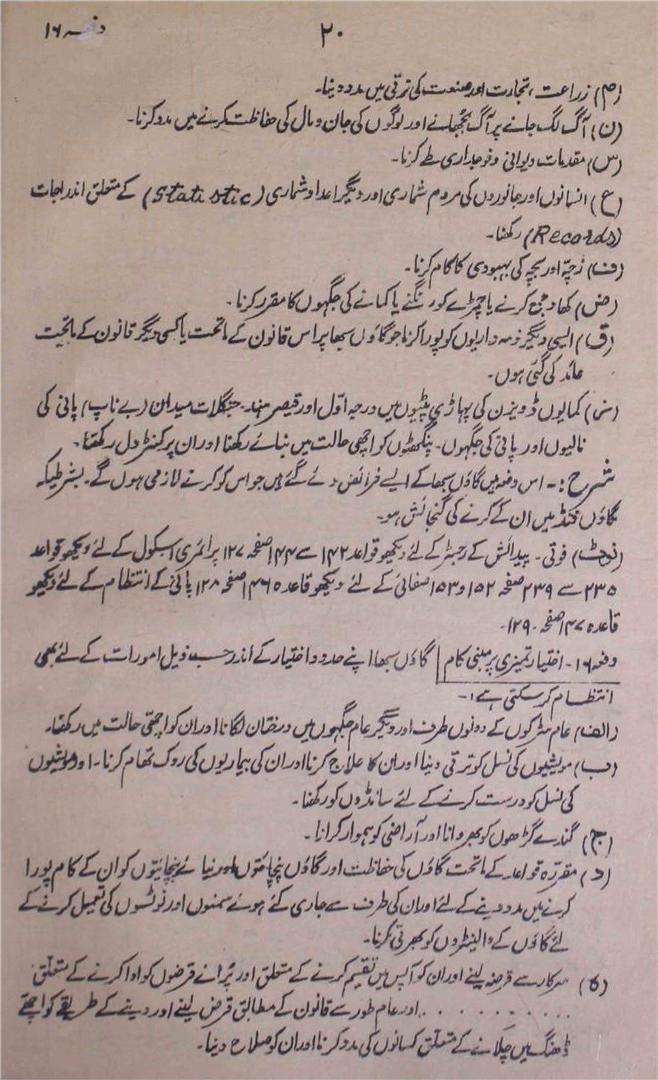 ۲۰ دفعہ ۱۶
(م) زراعت، تجارت اور صنعت کی ترقی میں مدد دینا۔
(ن) آگ لگ جانے پر آگ بجھانے اور لوگوں کی جان و مال کی حفاظت کرنے میں مدد کرنا۔
(س) مقدمات دیوانی و فوجداری طے کرنا۔
(ع) انسانوں اور جانوروں کی مردم شماری اور دیگر اعداد شماری (Statistic) کے متعلق اندراجات
(Records) رکھنا۔
(ف) زچہ اور بچہ کی بہبودی کا کام کرنا۔
(ض) کھاد جمع کرنے یا چمڑے کو رنگنے یا کمانے کی جگہوں کا مقرر کرنا۔
(ق) ایسی دیگر ذمہ داریوں کو پورا کرنا جو گاؤں سبھا پر اس قانون کے ماتحت یا کسی دیگر قانون کے ماتحت
عائد کی گئی ہوں۔
کمایوں ڈویزن کی پہاڑی پٹیوں میں درجہ اول اور قیصر ہند۔ جنگلات میدان (بے ناپ) پانی کی
نالیوں اور پانی کی جگہوں۔ پنگھٹوں کو اچھی حالت میں بنائے رکھنا اور ان پر کنٹرول رکھنا۔
شرح :۔ اس دفعہ میں گاؤں سبھا کے ایسے فرائض دئے گئے ہیں جو اس کو کرنے لازمی ہوں گے۔ بشرطیکہ
گاؤں فنڈ میں ان کے کرنے کی گنجائش ہو۔
(نوٹ) فوتی۔ پیدائش کے رجسٹر کے لئے دیکھو قواعد ۱۴۲ سے ۱۴۴ صفحہ ۱۲۷ پرائمری اسکول کے لئے دیکھو قواعد
۲۳۵ سے ۲۳۹ صفحہ ۱۵۲ و ۱۵۳ صفائی کے لئے دیکھو قاعدہ ۱۴۶ صفحہ ۱۲۸ پانی کے انتظام کے لئے دیکھو
قاعدہ ۱۴۷ صفحہ ۱۲۹۔
دفعہ ۱۶۔ اختیار تمیزی پر مبنی کام گاؤں سبھا اپنے حدود اختیار کے اندر حسب ذیل امورات کے لئے بھی
انتظام کر سکتی ہے :۔
(الف) عام سڑکوں کے دونوں طرف اور دیگر عام جگہوں میں درختان لگانا اور ان کو اچھی حالت میں رکھنا۔
(ب) مویشیوں کی نسل کو ترقی دینا اور ان کا علاج کرنا اور ان کی بیماریوں کی روک تھام کرنا۔ اور مویشیوں
کی نسل کو درست کرنے کے لئے سانڈوں کو رکھنا۔
(ج) گندے گڑھوں کو بھروانا اور آراضی کو ہموار کرانا۔
(د) مقررہ قواعد کے ماتحت گاؤں کی حفاظت اور گاؤں پنچائتوں اور نیائے پنچائتوں کو ان کے کام پورا
کرنے میں مدد دینے کے لئے اور ان کی طرف سے جاری کئے ہوئے سمنوں اور نوٹسوں کی تعمیل کرنے کے
لئے گاؤں کے والینٹروں کو بھرتی کرنا۔
(ہ) سرکار سے قرضہ لینے اور ان کو آپس میں تقسیم کرنے کے متعلق اور پرانے قرضوں کو ادا کرنے کے متعلق
. . . . . . . . . . اور عام طور سے قانون کے مطابق قرض لینے اور دینے کے طریقے کو اچھے
ڈھنگ میں چلانے کے متعلق کسانوں کی مدد کرنا اور ان کو صلاح دینا۔